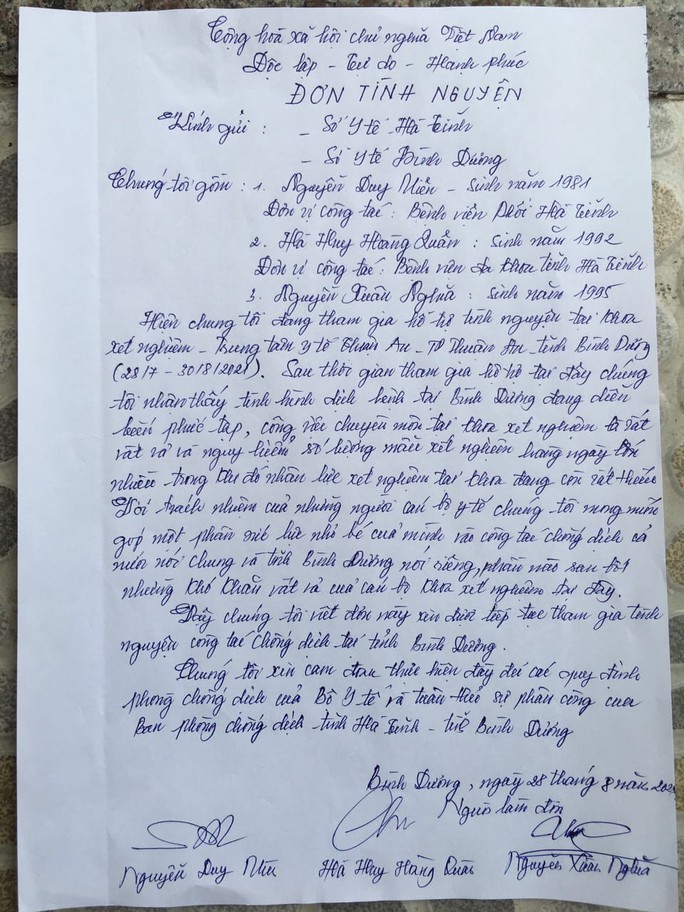 Cộng hoà xã hội chủ nghĩa Việt Nam
Độc lập - Tự do - Hạnh phúc
ĐƠN TÌNH NGUYỆN
Kính gửi : - Sở Y tế Hà Tĩnh
- Sở Y tế Bình Dương
Chúng tôi gồm : 1. Nguyễn Duy - Sinh năm 1981
Đơn vị công tác : Bệnh viện Phổi Hà Tĩnh
2. Hà Huy Hoàng Quân : Sinh năm 1992
Đơn vị công tác : Bệnh viện đa khoa tỉnh Hà Tĩnh
3. Nguyễn Xuân Nghĩa : Sinh năm 1995
Hiện chúng tôi đang tham gia hỗ trợ tình nguyện tại Khoa
xét nghiệm - Trung tâm Y tế Thuận An - TP Thuận An - tỉnh Bình Dương
(28/7 - 30/8/2021). Sau thời gian tham gia hỗ trợ tại đây chúng
tôi nhận thấy tình hình dịch bệnh tại Bình Dương đang diễn
biến phức tạp, công việc chuyên môn tại khoa xét nghiệm là rất
vất vả và nguy hiểm, số lượng mẫu xét nghiệm hàng ngày tồn
nhiều trong khi đó nhân lực xét nghiệm tại khoa đang còn rất thiếu.
Với trách nhiệm của những người cán bộ y tế chúng tôi mong muốn
góp một phần sức lực nhỏ bé của mình vào công tác chống dịch cả
nước nói chung và tỉnh Bình Dương nói riêng, phần nào san bớt
những khó khăn vất vả của cán bộ khoa xét nghiệm tại đây.
Vậy chúng tôi viết đơn này xin được tiếp tục tham gia tình
nguyện công tác chống dịch tại tỉnh Bình Dương.
Chúng tôi xin cam đoan thực hiện đầy đủ các quy định
phòng chống dịch của Bộ Y tế và tuân thủ sự phân công của
Ban phòng chống dịch tỉnh Hà Tĩnh - tỉnh Bình Dương
Bình Dương, ngày 28 tháng 8 năm 202
Người làm đơn
Nguyễn Duy Hà Huy Hoàng Quân Nguyễn Xuân Nghĩa